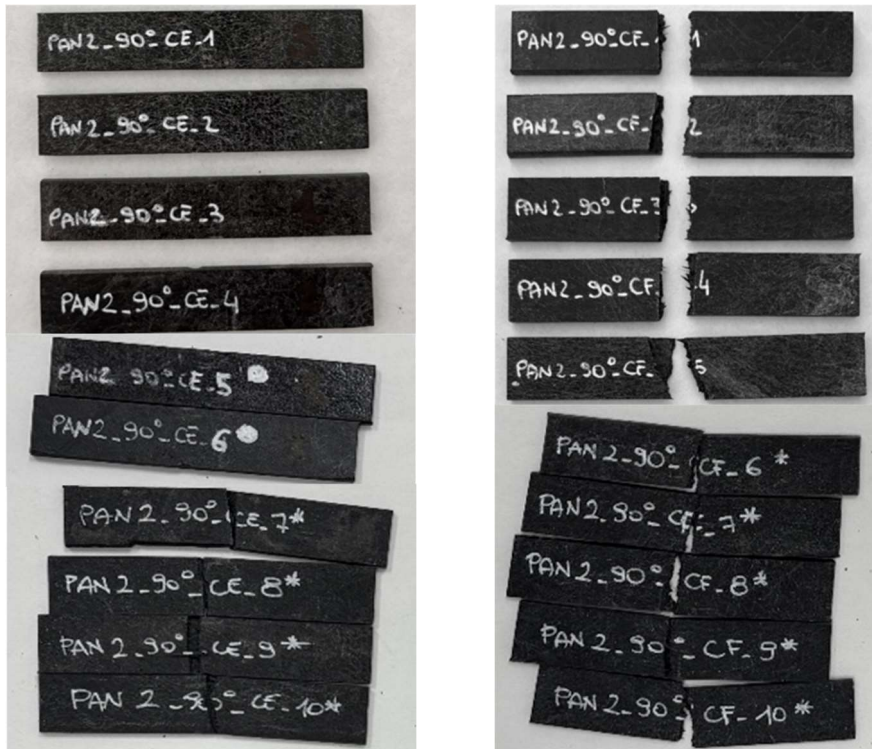 PAN2-90°-CE-1
PAN2-90°-CE-2
PAN2-90°-CE-3
PAN2-90°-CE-4
PAN2 90°-CE-5
PAN2-90°-CE-6
PAN2-90°-CE-7*
PAN2-90°-CE-8*
PAN2-90°-CE-9*
PAN2-90°-CE-10*
PAN2-90°-CF-1
PAN2-90°-CF-2
PAN2-90°-CF-3
PAN2-90°-CF-4
PAN2-90°-CF-5
PAN2-90°-CF-6*
PAN2-90°-CF-7*
PAN2-90°-CF-8*
PAN2-90°-CF-9*
PAN2-90°-CF-10*